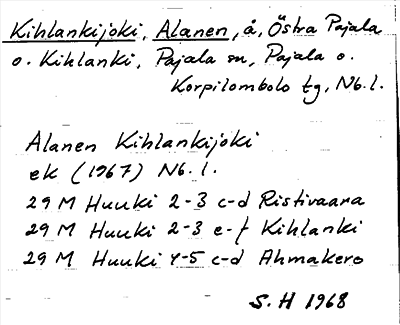 Kihlankijoki, Alanen, å, Östra Pajala
o. Kihlanki, Pajala sn, Pajala o.
Korpilombolo tg, Nb. l.
Alanen Kihlankijoki
ek (1967) Nb. l.
29 M Huuki 2-3 c-d Ristivaara
29 M Huuki 2-3 e-f Kihlanki
29 M Huuki 4-5 c-d Ahmakero
S. H 1968